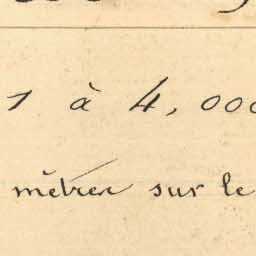 1 à 4,000
mètres sur le